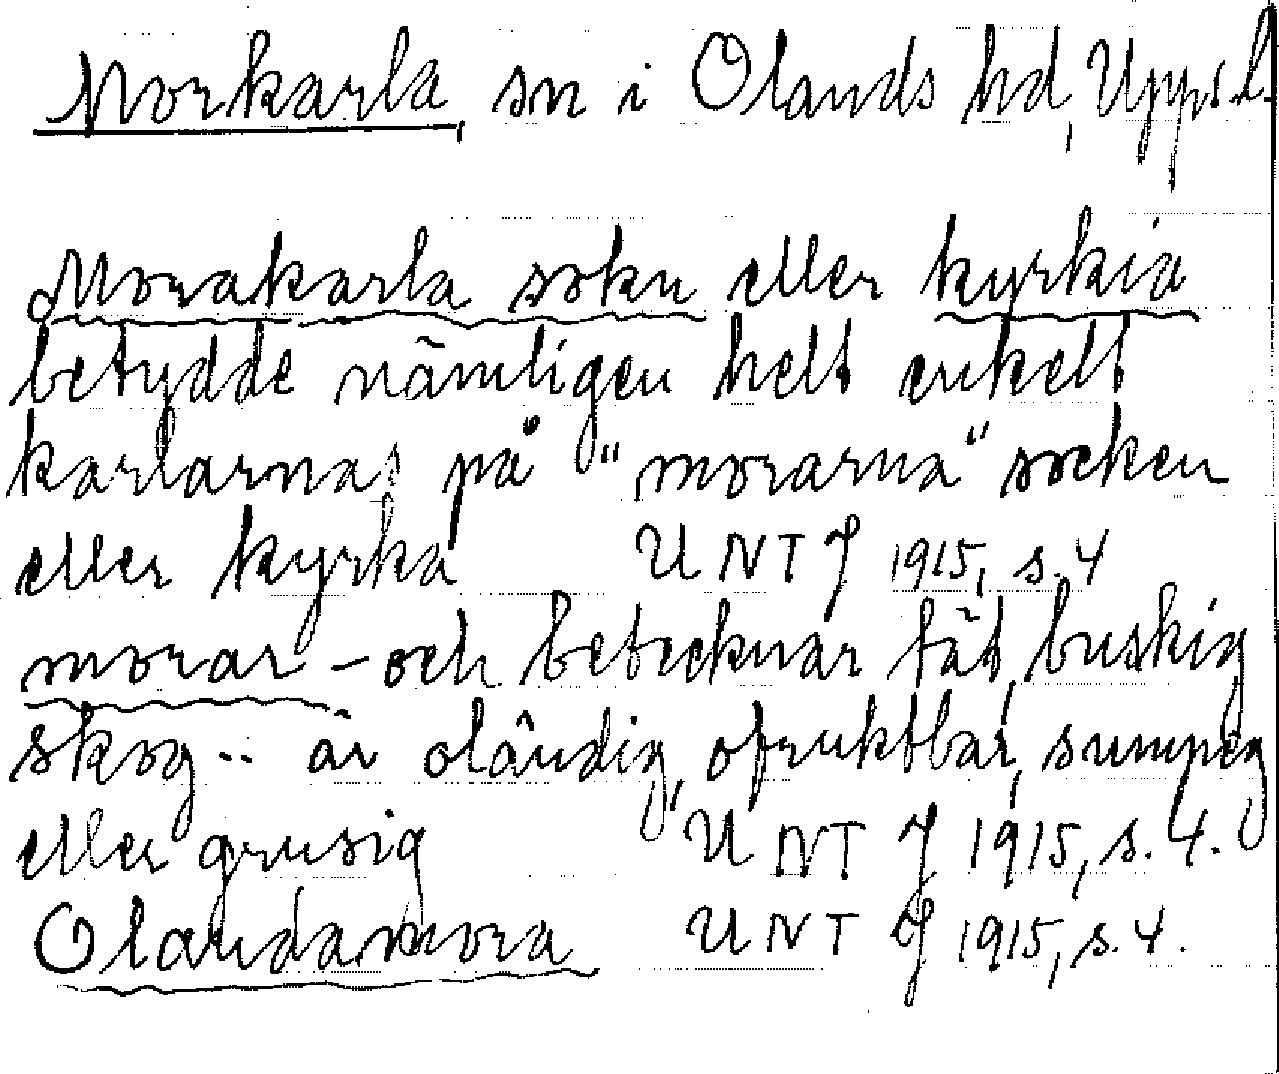 Morkarla, sn i Olands hd, Upps.l.
Morakarla sokn eller kyrkia
betydde nämligen helt enkelt
karlarnas på "morarna" socken
eller kyrka UNT J 1915, s. 4
morar – och betecknar tät, buskig
skog .. är oländig, ofruktbar, sumpig
eller grusig UNT J 1915, s. 4.
Olandamora UNT J 1915, s. 4.